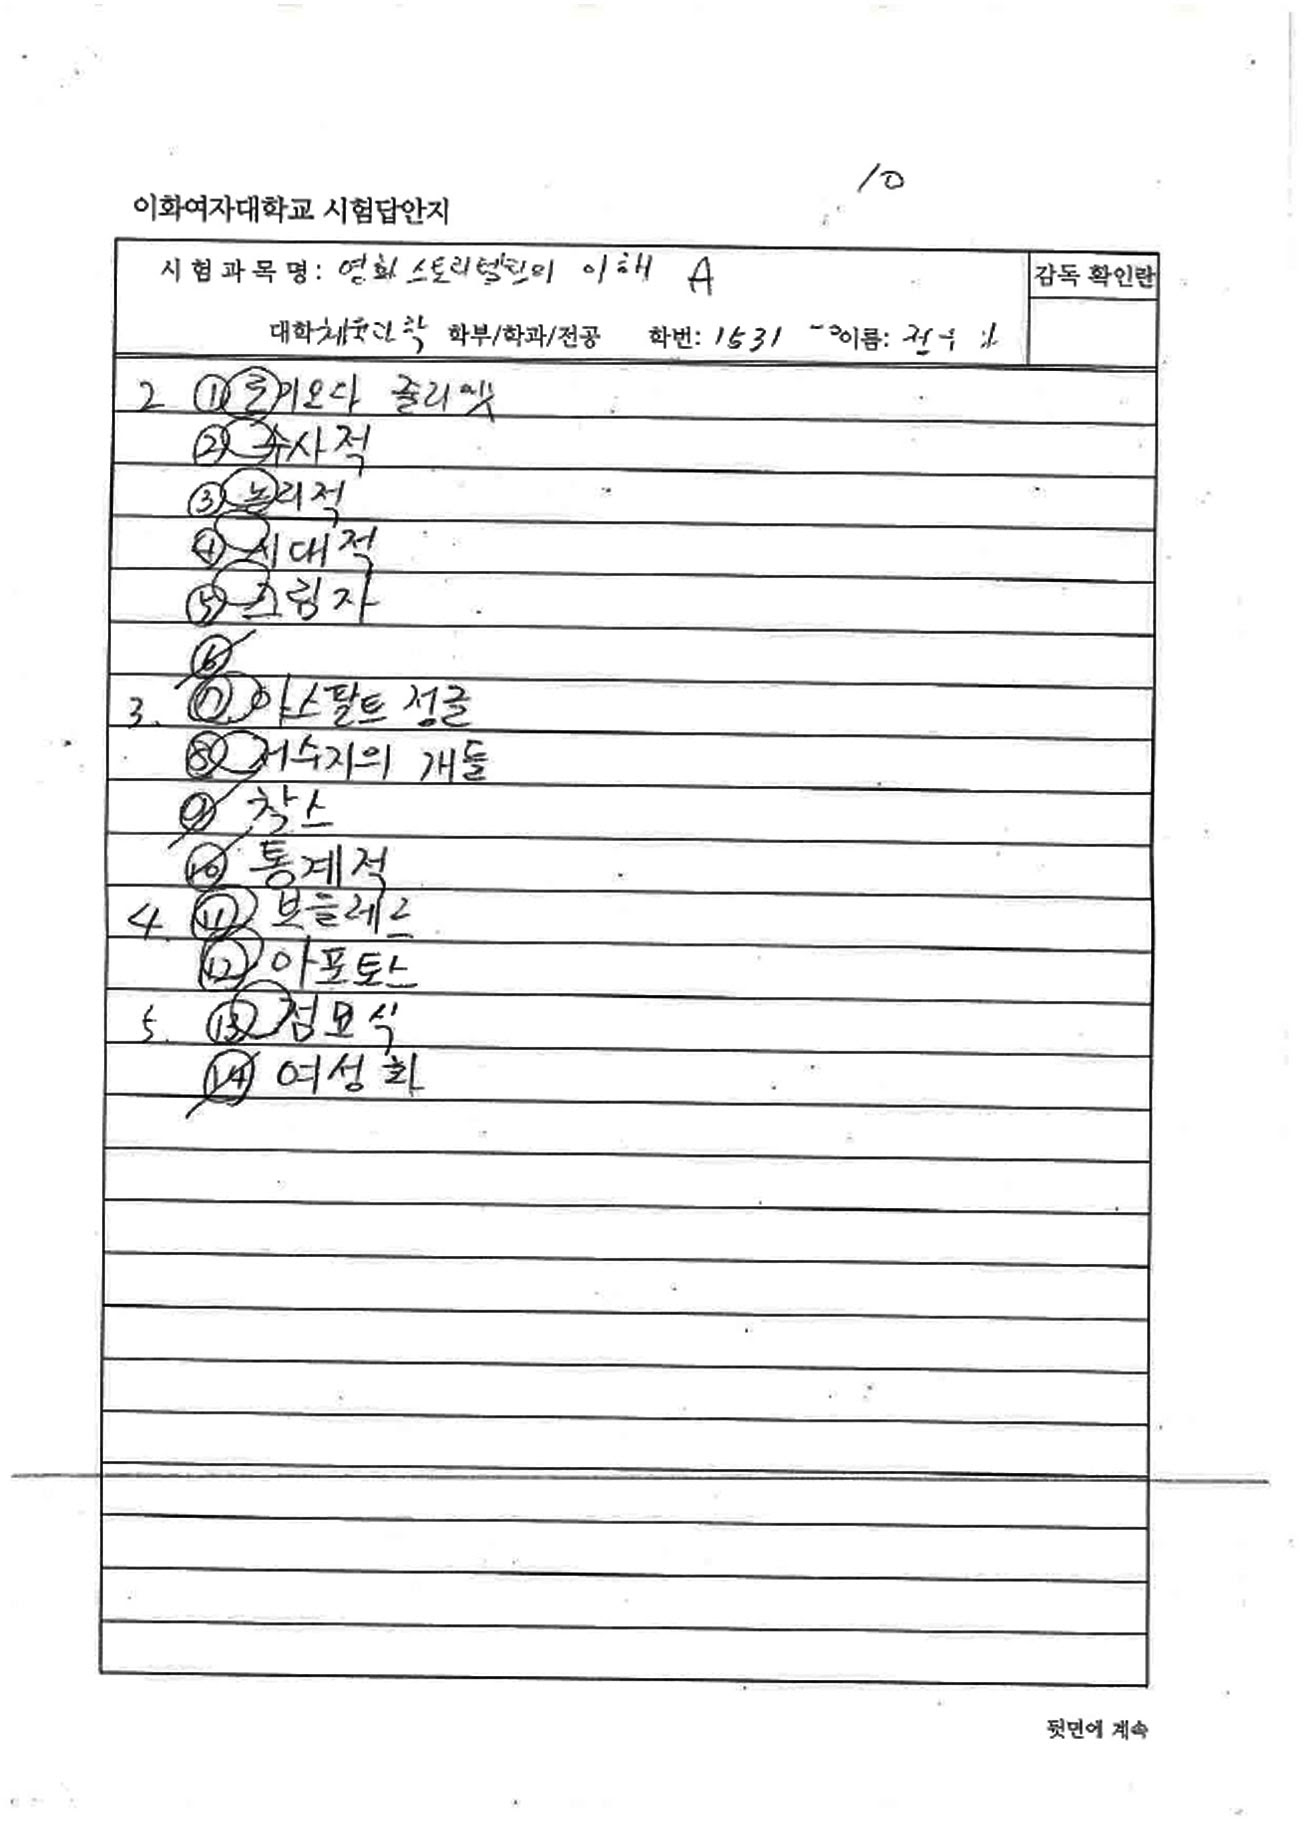 10
이화여자대학교 시험답안지
시험과목명: 영화스토리텔링의 이해 A
감독 확인란
대학 체육과학 학부/학과/전공 학번: 1531 이름:
2 ① 로미오와 줄리엣
② 수사적
③ 논리적
④ 시대적
⑤ 그림자
⑥
3. ⑦ 아스팔트 정글
⑧ 저수지의 개들
⑨ 찰스
⑩ 통계적
4. ⑪ 보들레르
⑫ 아포토스
5. ⑬ 점묘식
⑭ 여성화
뒷면에 계속